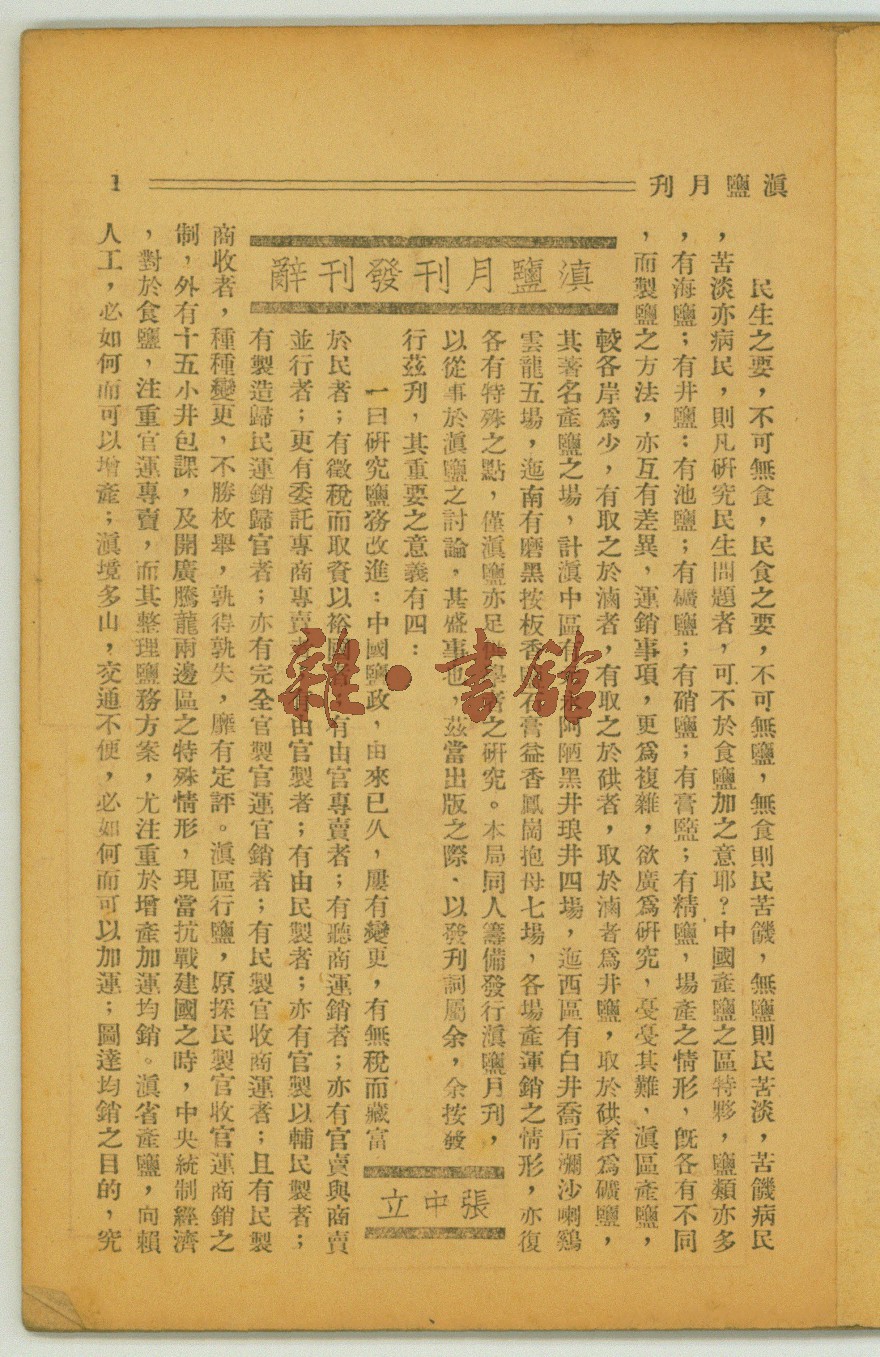 滇鹽月刊
1
滇鹽月刊發刊辭
張中立
民生之要，不可無食，民食之要，不可無鹽，無食則民苦饑，無鹽則民苦淡，苦饑病民
，苦淡亦病民，則凡研究民生問題者，可不於食鹽加之意耶？中國產鹽之區特夥，鹽類亦多
，有海鹽；有井鹽；有池鹽；有礦鹽；有硝鹽；有膏鹽；有精鹽，場產之情形，旣各有不同
，而製鹽之方法，亦互有差異，運銷事項，更爲複雜，欲廣爲研究，戞戞其難，滇區產鹽，
較各岸爲少，有取之於滷者，有取之於硔者，取於滷者爲井鹽，取於硔者爲礦鹽，
其著名產鹽之場，計滇中區有 阿陋黑井琅井四場，迤西區有白井喬后瀰沙喇鷄
雲龍五場，迤南有磨黑按板香 石膏益香鳳崗抱母七場，各場產運銷之情形，亦復
各有特殊之點，僅滇鹽亦足 之研究。本局同人籌備發行滇鹽月刊，
以從事於滇鹽之討論，甚盛事也，茲當出版之際，以發刊詞屬余，余按發
行茲刋，其重要之意義有四：
一曰研究鹽務改進：中國鹽政，由來已久，屢有變更，有無稅而藏富
於民者；有徵稅而取資以裕國者；有由官專賣者；有聽商運銷者；亦有官賣與商賣
並行者；更有委託專商專賣者；有由官製者；有由民製者；亦有官製以輔民製者；
有製造歸民運銷歸官者；亦有完全官製官運官銷者；有民製官收商運者；且有民製
商收者，種種變更，不勝枚舉，孰得孰失，靡有定評。滇區行鹽，原採民製官收官運商銷之
制，外有十五小井包課，及開廣騰龍兩邊區之特殊情形，現當抗戰建國之時，中央統制經濟
，對於食鹽，注重官運專賣，而其整理鹽務方案，尤注重於增產加運均銷。滇省產鹽，向賴
人工，必如何而可以增產；滇境多山，交通不便，必如何而可以加運；圖達均銷之目的，究
雜·書館